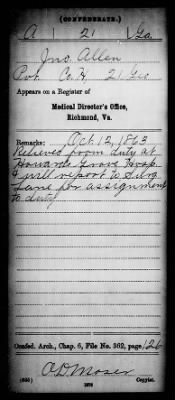 (CONFEDERATE.)
A | 21 | Ga
Jno. Allen
Pvt. Co. H, 21 Geo
Appears on a Register of
Medical Director's Office,
Richmond, Va.
Remarks: Oct. 12, 1863
Relieved from duty at
Howards Grove Hosp.
& will report to Surg.
Lane per assignment
to duty
Confed. Arch., Chap. 6, File No. 362, page 126
C. D. Moser
Copyist.